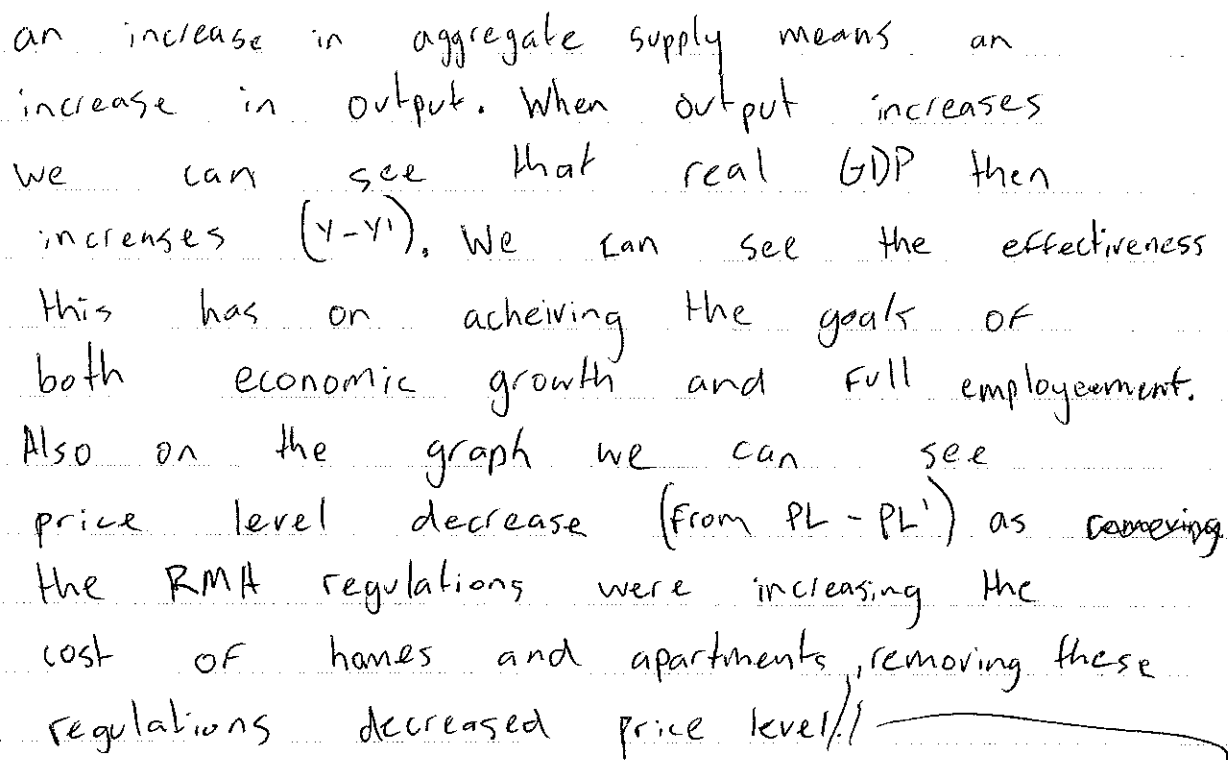 an increase in aggregate supply means an
increase in output. When output increases
we can see that real GDP then
increases (Y-Y'). We can see the effectiveness
this has on acheiving the goals of
both economic growth and full employeement.
Also on the graph we can see
price level decrease (from PL - PL') as
the RMA regulations were increasing the
cost of homes and apartments, removing these
regulations decreased price level.